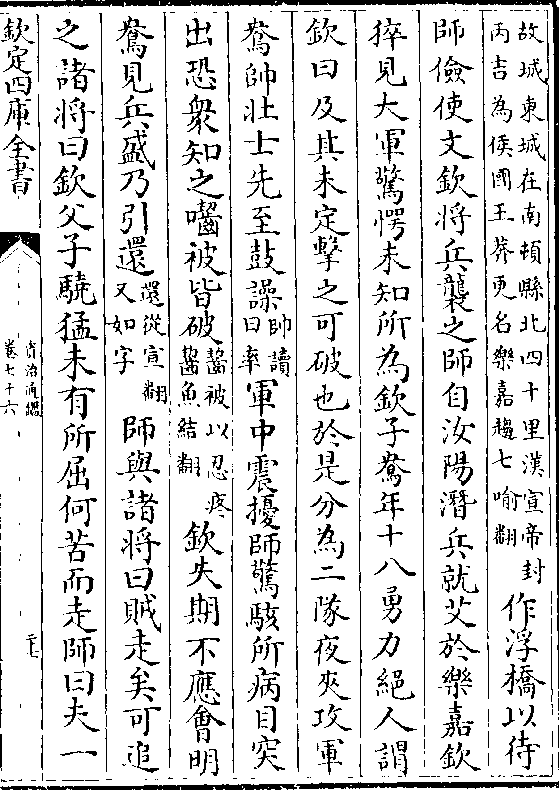 故城東城在南頓縣北四十里漢宣帝封
丙吉為侯國王莽更名樂嘉趨七喻翻
作浮橋以待
師儉使文欽將兵襲之師自汝陽潛兵就艾於樂嘉欽
猝見大軍驚愕未知所為欽子鴦年十八勇力絕人謂
欽曰及其未定擊之可破也於是分為二隊夜夾攻軍
鴦帥壯士先至鼓譟帥讀曰率軍中震擾師驚駭所病目突
出恐衆知之囓被皆破齧被以忍疼齧魚結翻欽失期不應會明
鴦見兵盛乃引還還從宣翻又如字師與諸將曰賊走矣可追
之諸將曰欽父子驍猛未有所屈何苦而走師曰夫一
欽定四庫全書
資治通鑑
卷七十六
二七